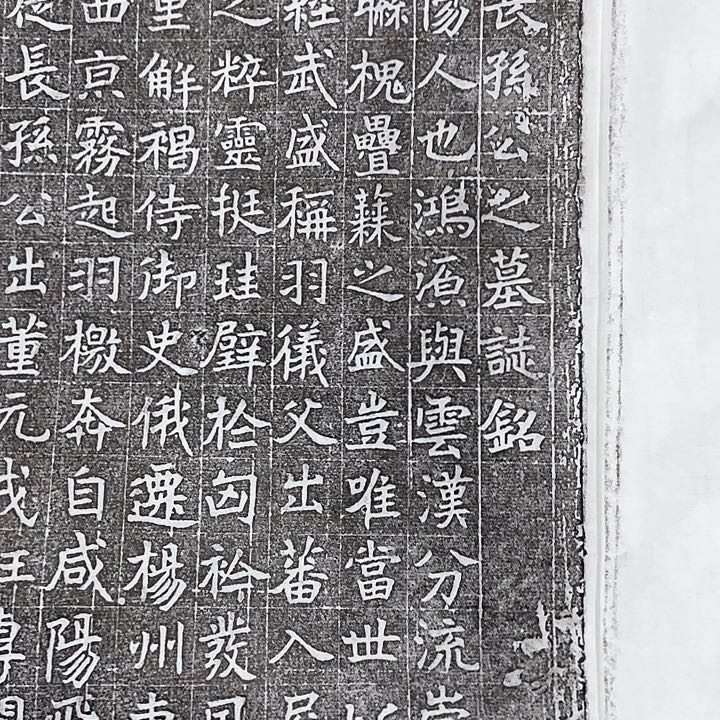 長孫公之墓誌銘
陽人也鴻源與雲漢分流崇
聯槐疊蕀之盛豈唯當世
經武盛稱羽儀父出蕃入居
之粹靈挺珪璧於匈衿發
重解褐侍御史俄遷楊州
西京霧起羽檄奔自咸陽飛
從長孫公出董元戎汪專